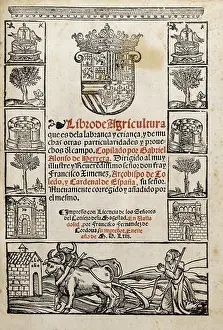 Libro de Agricultura
que es de la labrança y criança, y de mu
chas otras particularidades y proue
chos del campo. Copilado por Gabriel
Alonso de Herrera. Dirigido al muy
illustre y Reuerendissimo señor don fray
Francisco Ximenez, Arçobispo de To
ledo, y Cardenal de España, su señor.
Nueuamente corregido y añadido por
el mesmo.
Impresso con Licencia de los Señores
del Consejo de su Magestad. En Valla
dolid, por Francisco Fernandez de
Cordoua su impressor. Enere
año de M. D. Lxiij.